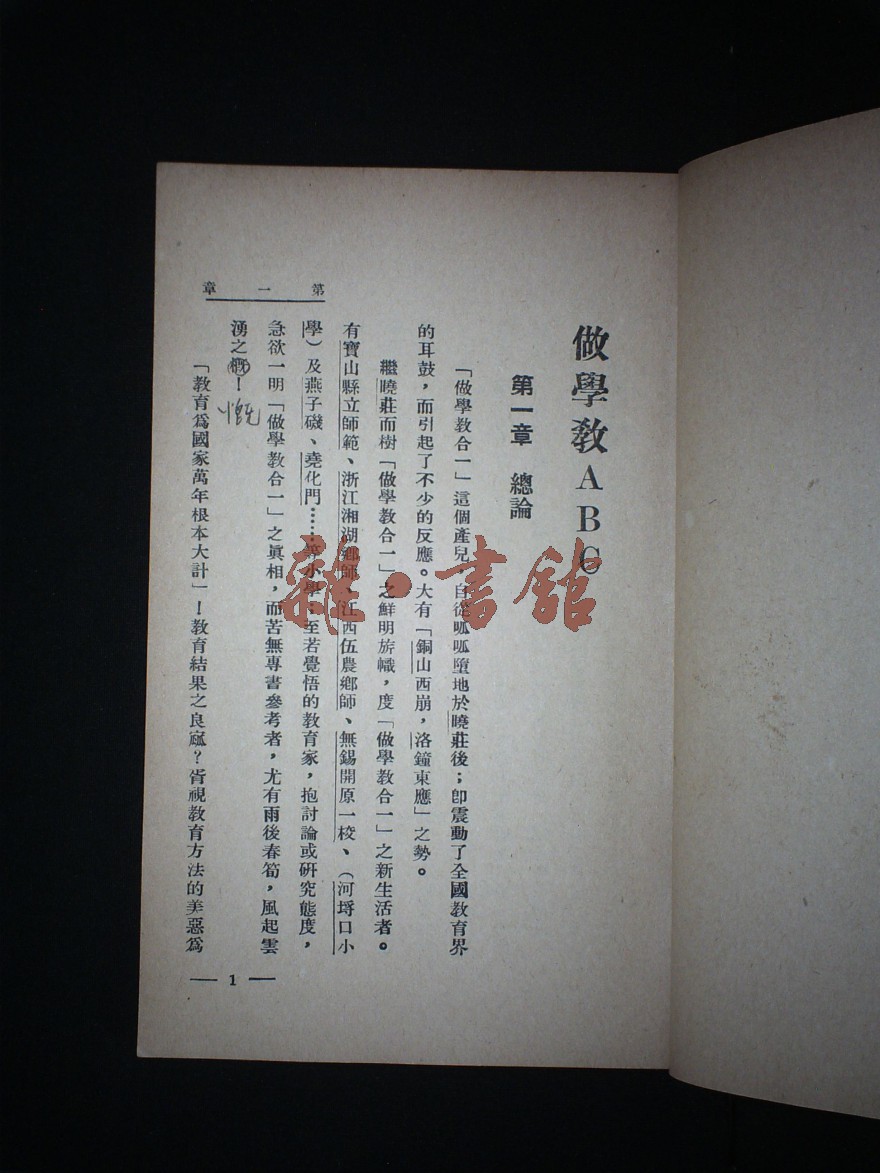 做學教ABC
第一章　總論
「做學教合一」這個產兒，自從呱呱墮地於曉莊後；卽震動了全國教育界
的耳鼓，而引起了不少的反應。大有「銅山西崩，洛鐘東應」之勢。
繼曉莊而樹「做學教合一」之鮮明旂幟，度「做學教合一」之新生活者。
有寶山縣立師範、浙江湘湖鄉師、江西伍農鄉師、無錫開原一校、（河埒口小
學）及燕子磯、堯化門……等小學；至若覺悟的教育家，抱討論或研究態度，
急欲一明「做學教合一」之眞相，而苦無專書參考者，尤有雨後春筍，風起雲
湧之概！
慨
「教育爲國家萬年根本大計」！教育結果之良窳？胥視教育方法的美惡爲
第一章
— 1 —
雜·書館